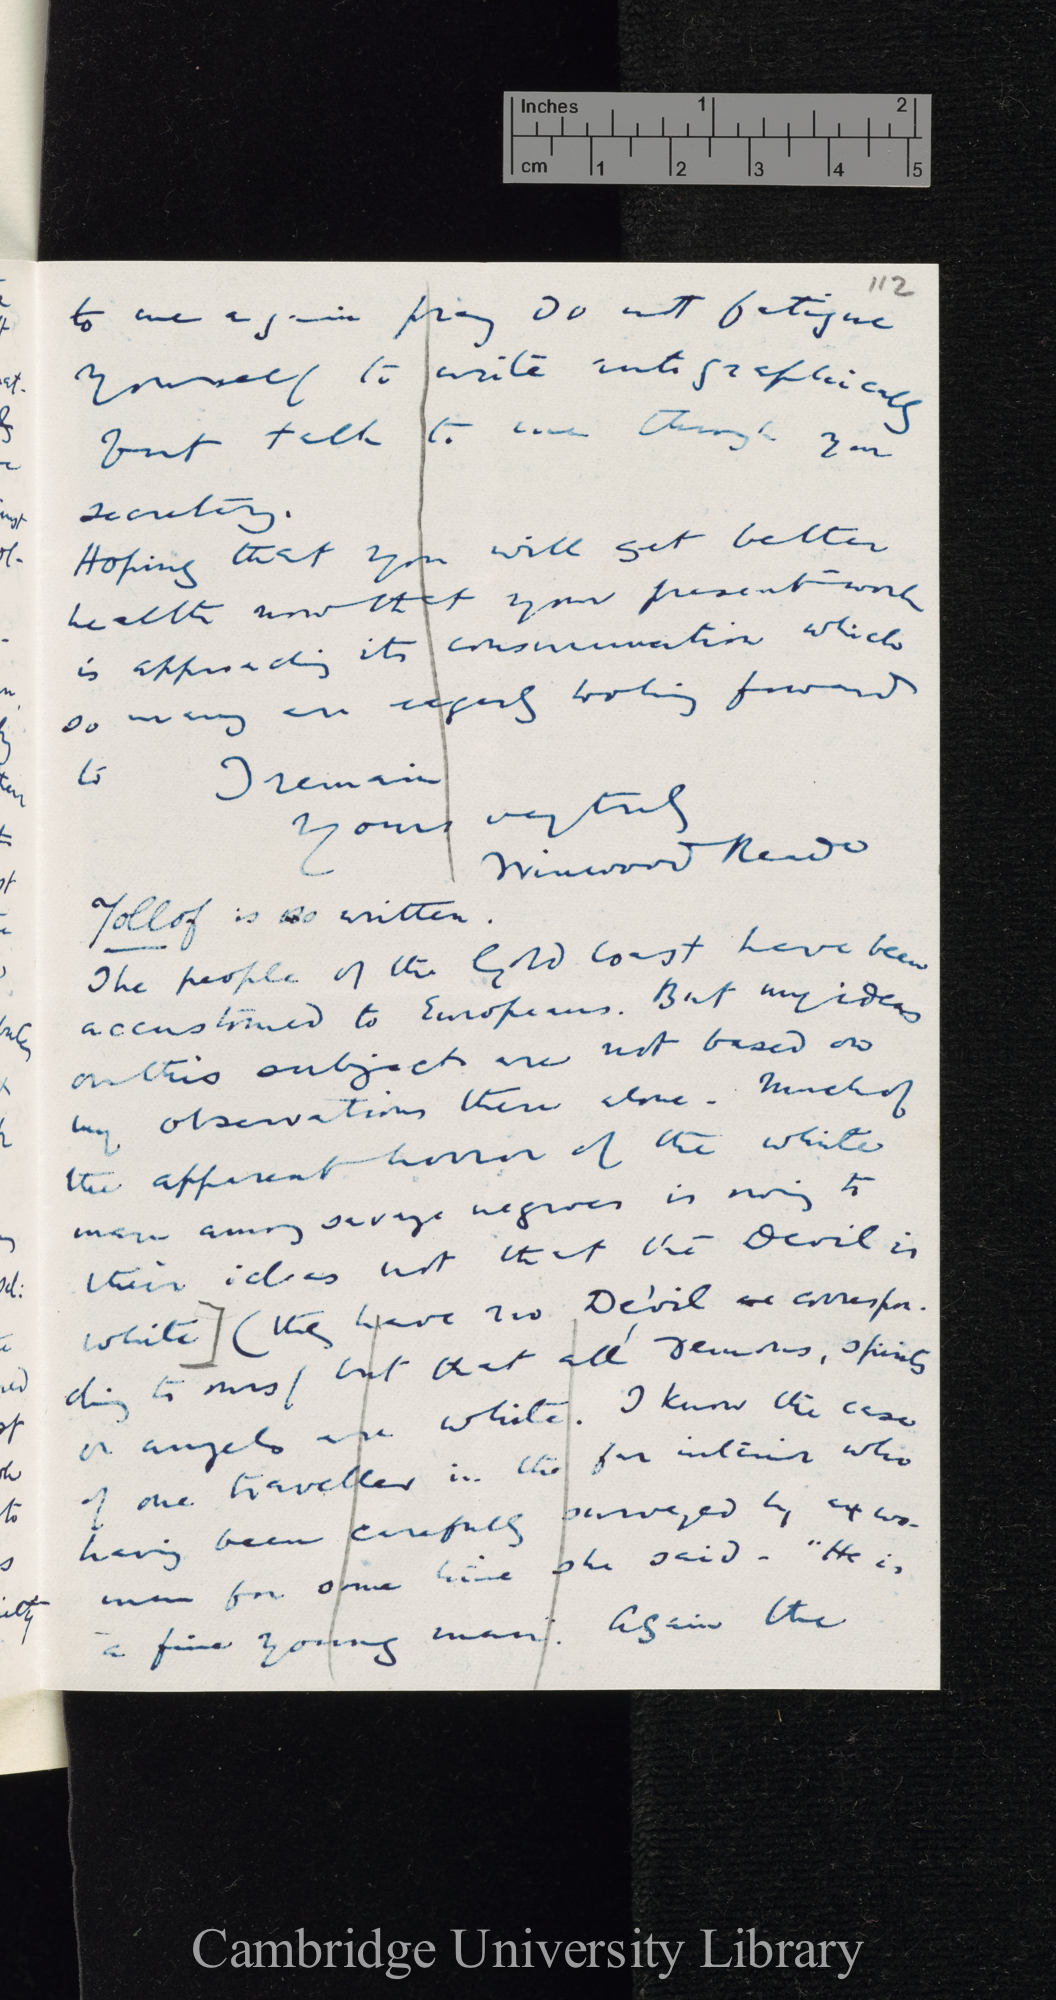 Inches 1 2
cm 1 2 3 4 5
112
to me again pray do not fatigue
yourself to write autographically
but talk to me through your
secretary.
Hoping that you will get better
health now that your present work
is approaching its consummation which
so many are eagerly looking forward
to I remain
Yours very truly
Winwood Reade
Jollof is so written.
The people of the Gold Coast have been
accustomed to Europeans. But my ideas
on this subject are not based on
my observations there alone. Much of
the apparent horror of the white
man among savage negroes is owing to
their ideas not that the Devil is
white] (they have no Devil correspon-
ding to ours) but that all demons, spirits
or angels are white. I know the case
of one traveller in the far interior who
having been carefully surveyed by a wo-
man for some time she said - "He is
a fine young man". Again the
Cambridge University Library